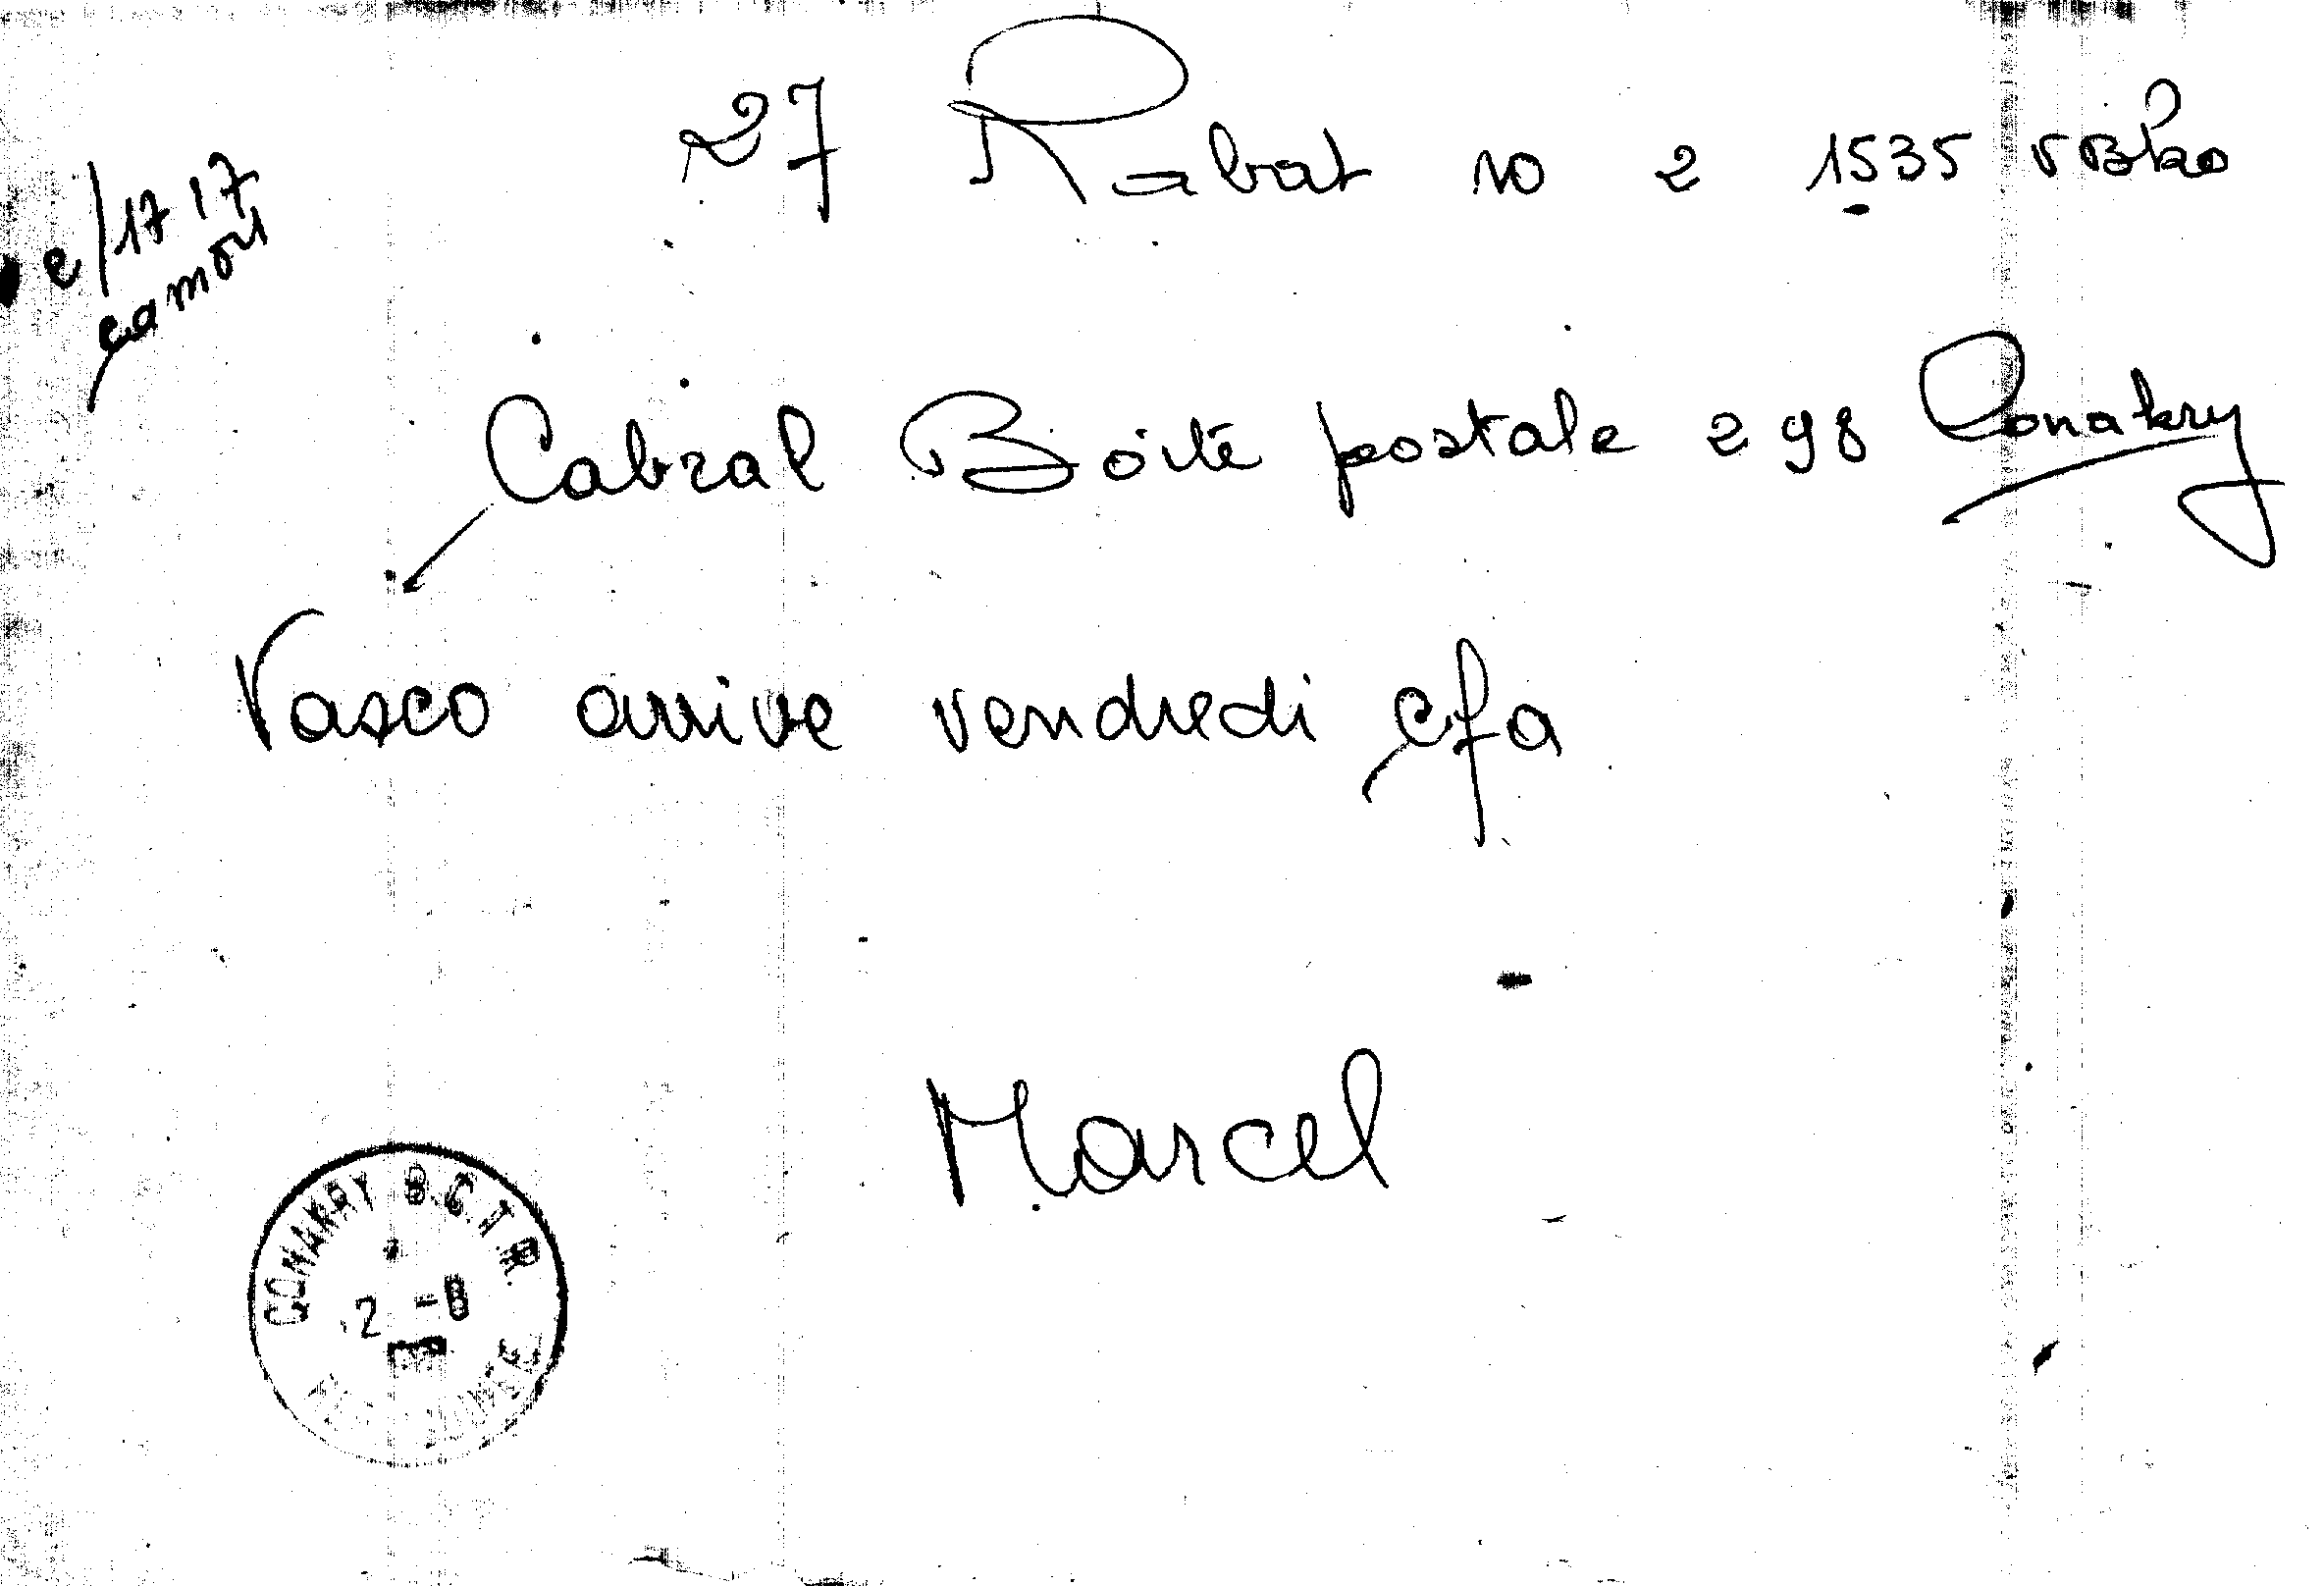 27 Rabat 10 2 1535 vBko
e/17 17
camou
Cabral Boite postale 298 Conakry
Vasco arrive vendredi cfa
Marcel
CONAKRY B.C.T.R.
2 -8